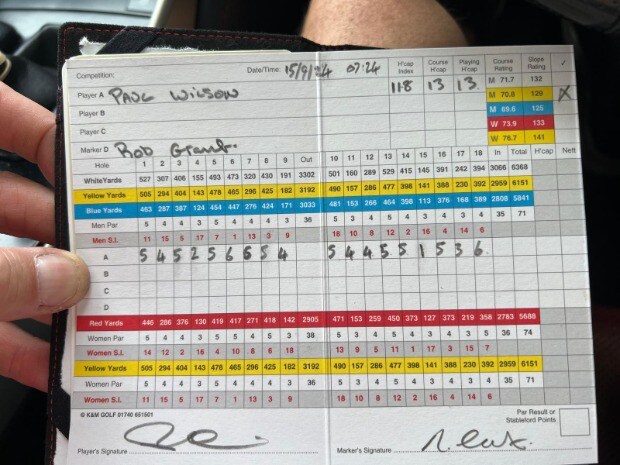 Competition: Date/Time: 15/9/24 07:24 H'cap Index Course H'cap Playing H'cap Course Rating Slope Rating ✓
Player A PAUL WILSON 11.8 13 13 M 71.7 132
M 70.8 129 X
Player B M 69.6 125
Player C W 73.9 133
Marker D ROD W 76.7 141
Hole 1 2 3 4 5 6 7 8 9 Out 10 11 12 13 14 15 16 17 18 In Total H'cap Nett
White Yards 527 307 406 155 493 473 320 430 191 3302 501 160 289 529 415 145 391 242 394 3066 6368
Yellow Yards 505 294 404 143 478 465 296 425 182 3192 490 157 286 477 398 141 388 230 392 2959 6151
Blue Yards 463 287 387 124 454 447 276 424 171 3033 481 153 266 464 398 113 376 168 389 2808 5841
Men Par 5 4 4 3 5 4 4 4 3 36 5 3 4 5 4 3 4 3 4 35 71
Men S.I. 11 15 5 17 7 1 13 3 9 18 10 8 12 2 16 4 14 6
A 5 4 5 2 5 6 6 5 4 5 4 4 5 5 1 5 3 6
B
C
D
Red Yards 446 286 376 120 419 417 271 418 142 2905 471 153 253 450 373 127 373 219 358 2783 5688
Women Par 5 4 4 3 5 5 4 5 3 38 5 3 4 5 4 3 4 3 5 36 74
Women S.I. 14 12 2 16 4 10 8 6 18 13 9 5 11 1 17 3 15 7
Yellow Yards 505 294 404 143 478 465 296 425 182 3192 490 157 286 477 398 141 388 230 392 2959 6151
Women Par 5 4 4 3 5 4 4 4 3 36 5 3 4 5 4 3 4 3 4 35 71
Women S.I. 11 15 5 17 7 1 13 3 9 18 10 8 12 2 16 4 14 6
© K&M GOLF 01740 651501 Par Result or Stableford Points
Player's Signature Marker's Signature